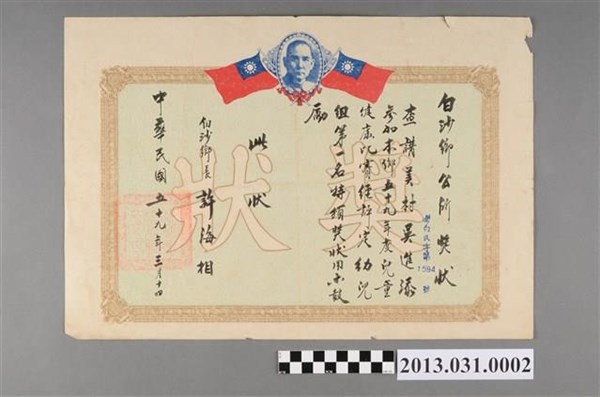 白沙鄉公所獎狀
鄉白民字第1584號
查講美村吳進添
參加本鄉五十九年度兒童
健康比賽經評定幼兒
組第一名特頒獎狀用示鼓
勵
此狀
白沙鄉長 許海相
中華民國五十九年三月十四
獎狀
2013.031.0002